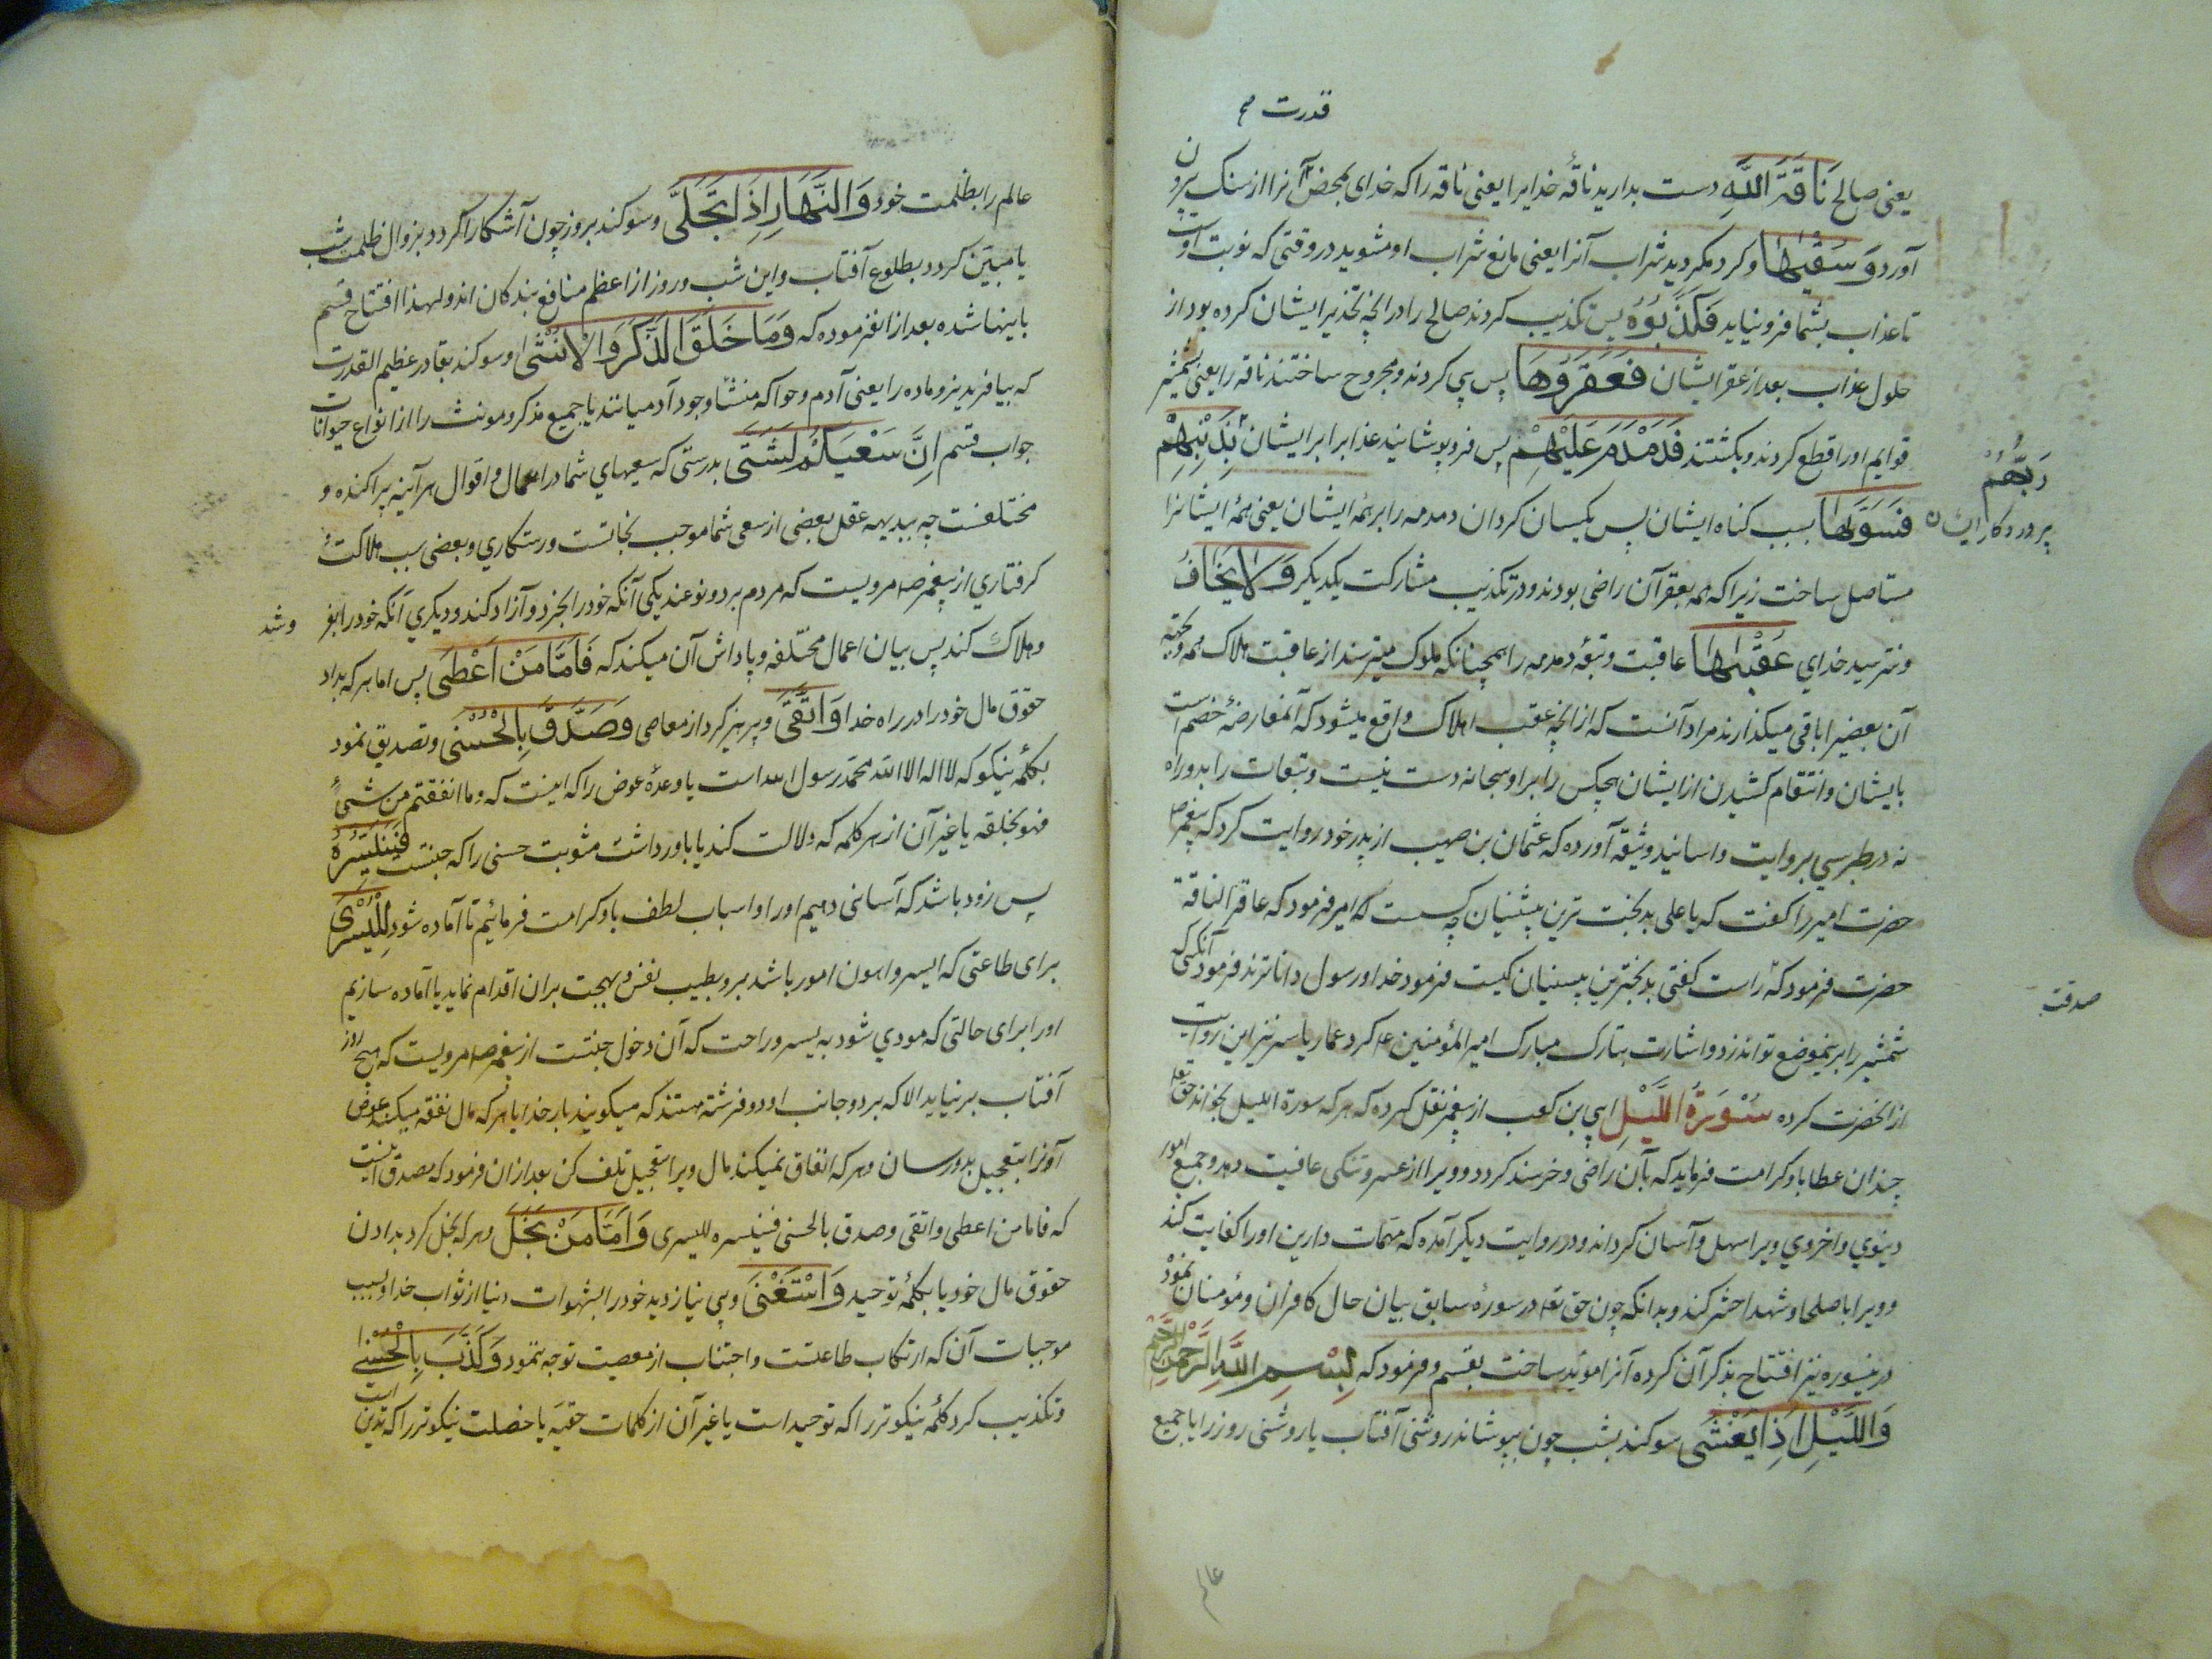 قدرت
یعنی صالح نَاقَةَ اللَّهِ دست بدارید ناقهٔ خدایرا یعنی ناقه را که خدای بمحض آنرا از سنک بیرون
آورد وَ سُقْيٰهَا و کرد مکردید شراب آنرا یعنی مانع شراب او مشوید در وقتی که نوبت
تا عذاب بشما فرو نیاید فَكَذَّبُوهُ پس تکذیب کردند صالح را در انچه تحذیر ایشان کرده بود از
حلول عذاب بعد از عقر ایشان فَعَقَرُوْهَا پس پی کردند و مجروح ساختند ناقه را یعنی بشمشیر
قوایم او را قطع کردند و بکشتند فَدَمْدَمَ عَلَيْهِمْ پس فرو پوشانید عذابرا بر ایشان بِذَنْبِهِمْ
رَبُّهُمْ
پروردکار ایشان
فَسَوّٰىهَا بسبب کناه ایشان پس یکسان کردان دمدمه را بر همهٔ ایشان یعنی همهٔ ایشانرا
مستاصل ساخت زیرا که همه بعقر آن راضی بودند و در تکذیب مشارکت یکدیکر وَلَا يَخَافُ
و نترسید خدای عُقْبٰهَا عاقبت و تبعهٔ دمدمه را همچنانکه ملوک میترسند از عاقبت هلاک همه و
آن بعضیرا باقی میکذارند مراد آنست که از انچه عقب اهلاک واقع میشود که آن معارضهٔ خصم است
بایشان و انتقام کشیدن از ایشان هیچکس را بر او سبحانه دست نیست و تبعات را بدو راه
نه در طبرسی بروایت و اسانید وثیقه آورده که عثمان بن صهیب از پدر خود روایت کرد که پیغمبر ص
حضرت امیر را کفت که یا علی بدبخت ترین پیشینیان چه کسست که امیر فرمود که عاقر الناقة
حضرت فرمود که راست کفتی بدبخترین پسینیان کیست فرمود خدا و رسول داناترند فرمود آنکسی که
صدقت
شمشیر را برینموضع تو اندازد و اشارت بتارک مبارک امیر المؤمنین ع کرد عمار یاسر نیز این روایت
از انحضرت کرده سُوْرَةُ اللَّيْلِ ابی بن کعب از پیغمبر نقل کرده که هر که سورة اللیل بخواند حق تعا
چندان عطا باو کرامت فرماید که بآن راضی و خرسند کردد و ویرا از عسر و تنکی عافیت دهد و جمیع امور
دنیوی و اخروی ویرا سهل و آسان کرداند و در روایت دیکر آمده که مهمات دارین او را کفایت کند
و ویرا با صلحا و شهدا حشر کند و بدانکه چون حق تعا در سورهٔ سابق بیان حال کافران و مؤمنان نمود
درینسوره نیز افتتاح بذکر آن کرده آنرا موید ساخت بقسم و فرمود که بِسْمِ اللَّهِ الرَّحْمٰنِ الرَّحِيْمِ
وَاللَّيْلِ اِذَا يَغْشٰى سوکند بشب چون بپوشاند روشنی آفتاب یا روشنی روز را یا جمیع
عالم
عالم را بظلمت خود وَالنَّهَارِ اِذَا تَجَلّٰى و سوکند بروز چون آشکارا کردد بزوال ظلمت شب
یا مبین کردد بطلوع آفتاب و این شب و روز از اعظم منافع بندکان اند و لهذا افتتاح قسم
باینها شده بعد از ان فرموده که وَمَا خَلَقَ الذَّكَرَ وَالْاُنْثٰى و سوکند بقادر عظیم القدرت
که بیافرید نر و ماده را یعنی آدم و حوا که منشأ وجود آدمیانند یا جمیع مذکر و مونث را از انواع حیوانات
جواب قسم اِنَّ سَعْيَكُمْ لَشَتّٰى بدرستی که سعیهای شما در اعمال و اقوال هر آینه پراکنده و
مختلفست چه ببدیهه عقل بعضی از سعی شما موجب نجاتست و رستکاری و بعضی سبب هلاکت و
کرفتاری از پیغمبر ص مرویست که مردم بر دو نوعند یکی آنکه خود را بخرد و آزاد کند و دیکری آنکه خود را بفر
وشد
و هلاک کند پس بیان اعمال مختلفه و پاداش آن میکند که فَاَمَّا مَنْ اَعْطٰى پس اما هر که بداد
حقوق مال خود را در راه خدا وَاتَّقٰى و پرهیز کرد از معاصی وَصَدَّقَ بِالْحُسْنٰى و تصدیق نمود
بکلمهٔ نیکو که لا اله الا الله محمد رسول الله است یا وعدهٔ عوض را که اینست که و ما انفقتم من شیءٍ
فهو یخلفه یا غیر آن از هر کلمه که دلالت کند یا باور داشت مثوبت حسنی را که جنتست فَسَنُيَسِّرُهُ
پس زود باشد که آسانی دهیم او را و اسباب لطف باو کرامت فرمائیم تا آماده شود لِلْيُسْرٰى
برای طاعتی که ایسر و اهون امور باشد برو و بطیب نفس و بهجت بران اقدام نماید یا آماده سازیم
او را برای حالتی که مودی شود به یسر و راحت که آن دخول جنتست از پیغمبر ص مرویست که هیچ روز
آفتاب برنیاید الا که بر دو جانب او دو فرشته هستند که میکویند بار خدایا هر که مال نفقه میکند عوض
آنرا بتعجیل بدو رسان و هر که انفاق نمیکند مال ویرا بتعجیل تلف کن بعد از ان فرمود که مصدق اینست
که فاما من اعطی و اتقی و صدق بالحسنی فسنیسره للیسری وَاَمَّا مَنْ بَخِلَ و هر که بخل کرد بدادن
حقوق مال خود یا بکلمهٔ توحید وَاسْتَغْنٰى و بی نیاز دید خود را بشهوات دنیا از ثواب خدا و بسبب
موجبات آن که ارتکاب طاعتست و اجتناب از معصیت توجه ننمود وَكَذَّبَ بِالْحُسْنٰى
و تکذیب کرد کلمهٔ نیکوتر را که توحید است یا غیر آن از کلمات حقیه یا خصلت نیکوتر را که تدین است